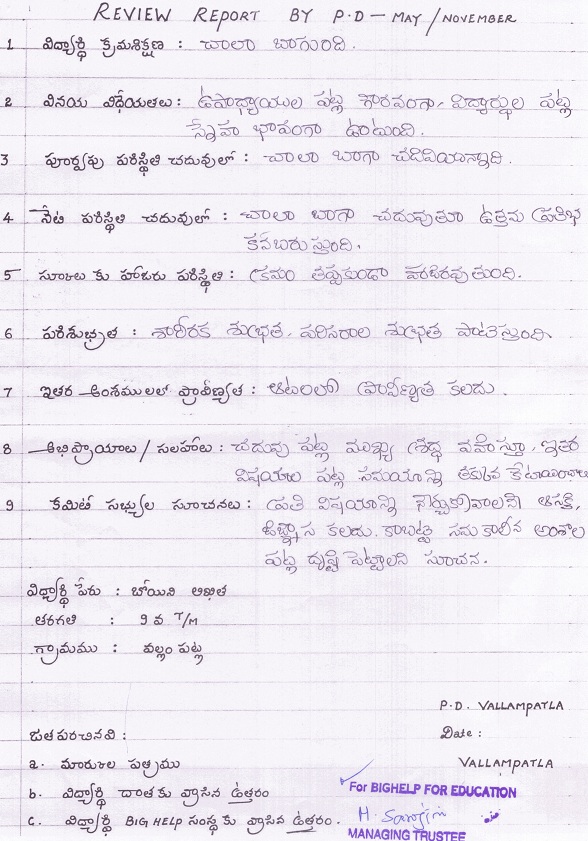 REVIEW REPORT BY P.D - MAY / NOVEMBER
1 విద్యార్థి క్రమశిక్షణ : చాలా బాగుంది.
2 వినయ విధేయతలు: ఉపాధ్యాయుల పట్ల గౌరవంగా, విద్యార్థుల పట్ల
స్నేహ భావంగా ఉంటుంది.
3 పూర్వపు పరిస్థితి చదువులో : చాలా బాగా చదివియున్నాది.
4 నేటి పరిస్థితి చదువులో : చాలా బాగా చదువుతూ ఉత్తమ ప్రతిభ
కనబరుస్తుంది.
5 స్కూలు కు హాజరు పరిస్థితి : క్రమం తప్పకుండా హాజరవుతుంది.
6 పరిశుభ్రత : శారీరక శుభ్రత, పరిసరాల శుభ్రత పాటిస్తుంది
7 ఇతర అంశములలో ప్రావీణ్యత : ఆటలలో ప్రావీణ్యత కలదు.
8 అభిప్రాయాలు / సలహాలు : చదువు పట్ల ముఖ్య శ్రద్ధ వహిస్తూ, ఇతర
విషయాల పట్ల సమయాన్ని తక్కువ కేటాయించాలి
9 కమిటీ సభ్యుల సూచనలు : ప్రతి విషయాన్ని నేర్చుకోవాలనే ఆసక్తి,
జిజ్ఞాస కలదు. కాబట్టి సమకాలీన అంశాల
పట్ల దృష్టి పెట్టాలని సూచన.
విద్యార్థి పేరు : బోయిని అఖిల
తరగతి : 9 వ T/M
గ్రామము : వల్లం పట్ల
P.D. VALLAMPATLA
జతపరచినవి :
Date :
a. మార్కుల పత్రము
VALLAMPATLA
b. విద్యార్థి దాతకు వ్రాసిన ఉత్తరం
For BIGHELP FOR EDUCATION
c. విద్యార్థి BIG HELP సంస్థ కు వ్రాసిన ఉత్తరం.
MANAGING TRUSTEE